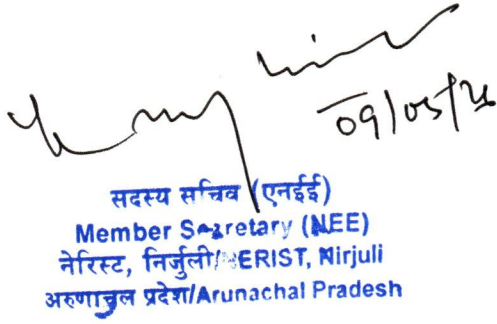 09/05/
सदस्य सचिव (एनईई)
Member Secretary (NEE)
नेरिस्ट, निर्जुली/NERIST, Nirjuli
अरुणाचल प्रदेश/Arunachal Pradesh